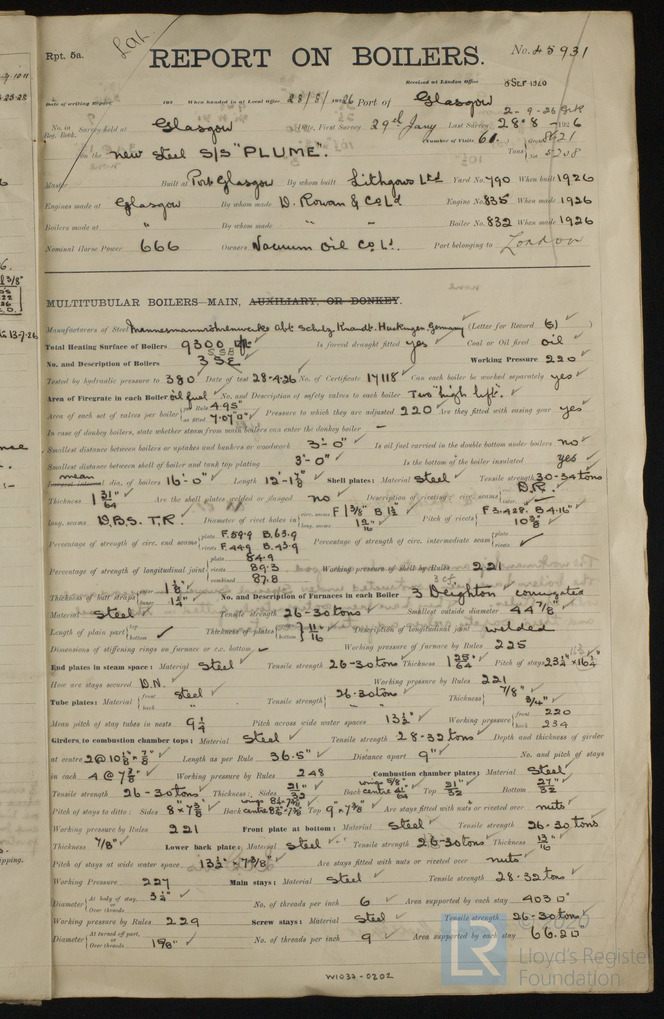 Rpt. 5a.
Lak
REPORT ON BOILERS.
No. 45931
Received at London Office 8 SEP 1920
Date of writing Report 192 When handed in at Local Office 28/8/1926 Port of Glasgow
No. in Reg. Book. Survey held at Glasgow Date, First Survey 29th Jany Last Survey 28.8 1926
on the new steel S/S "PLUME". (Number of Visits 61.) Gross 8621 Tons Net 5208
Master Built at Port Glasgow By whom built Lithgows Ltd Yard No. 790 When built 1926
Engines made at Glasgow By whom made D. Rowan & Co Ld Engine No. 835 When made 1926
Boilers made at " By whom made " " Boiler No. 832 When made 1926
Nominal Horse Power 666 Owners Vacuum Oil Co Ld. Port belonging to London
MULTITUBULAR BOILERS—MAIN, AUXILIARY, OR DONKEY.
Manufacturers of Steel Mannesmannröhrenwerke Abt. Schulz Knaudt. Huckingen Germany (Letter for Record (S))
Total Heating Surface of Boilers 9300 Is forced draught fitted yes Coal or Oil fired oil
No. and Description of Boilers 3 SE Working Pressure 220
Tested by hydraulic pressure to 380 Date of test 28-4-26 No. of Certificate 17118 Can each boiler be worked separately yes
Area of Firegrate in each Boiler oil fuel No. and Description of safety valves to each boiler Two "high lift".
Area of each set of valves per boiler per Rule 4.95" as fitted 7.07" Pressure to which they are adjusted 220 Are they fitted with easing gear yes
In case of donkey boilers, state whether steam from main boilers can enter the donkey boiler —
Smallest distance between boilers or uptakes and bunkers or woodwork 3'-0" Is oil fuel carried in the double bottom under boilers no
Smallest distance between shell of boiler and tank top plating 3'-0" Is the bottom of the boiler insulated yes
mean dia. of boilers 16'-0" Length 12'-1⅞" Shell plates: Material Steel Tensile strength 30-34 tons
Thickness 1 31/64" Are the shell plates welded or flanged no Description of riveting: circ. seams D.R.
long. seams D.B.S. T.R. Diameter of rivet holes in circ. seams F 1⅜" B 1½" long. seams Pitch of rivets F 3.428. B 4.16" 10⅜"
Percentage of strength of circ. end seams plate F.59.9 B.63.9 rivets F.44.9 B.43.9 Percentage of strength of circ. intermediate seam plate rivets
Percentage of strength of longitudinal joint plate 84.9 rivets 89.3 combined 87.8 Working pressure of shell by Rules 221
Thickness of butt straps outer 1⅛" inner 1¼" No. and Description of Furnaces in each Boiler 3 Deighton corrugated
Material Steel Tensile strength 26-30 tons Smallest outside diameter 44⅞"
Length of plain part top bottom Thickness of plates 11/16" Description of longitudinal joint welded
Dimensions of stiffening rings on furnace or c.c. bottom — Working pressure of furnace by Rules 225
End plates in steam space: Material Steel Tensile strength 26-30 tons Thickness 1 25/64 Pitch of stays 23¼" × 16¼"
How are stays secured D.N. Working pressure by Rules 221
Tube plates: Material front Steel back " Tensile strength 26-30 tons " " Thickness ⅞" ¾"
Mean pitch of stay tubes in nests 9¼ Pitch across wide water spaces 13½" Working pressure front 220 back 234
Girders to combustion chamber tops: Material Steel Tensile strength 28-32 tons Depth and thickness of girder
at centre 2@10½" × ⅞" Length as per Rule 36.5" Distance apart 9" No. and pitch of stays
in each 4@7⅜" Working pressure by Rules 248 Combustion chamber plates: Material Steel
Tensile strength 26-30 tons Thickness: Sides 21/32" Back wings ⅝" centre 41/64 Top 21/32 Bottom 27/32"
Pitch of stays to ditto: Sides 8"×7⅜" Back Top 9"×7⅜ Are stays fitted with nuts or riveted over nuts
Working pressure by Rules 221 Front plate at bottom: Material Steel Tensile strength 26-30 tons
Thickness ⅞" Lower back plate: Material Steel Tensile strength 26-30 tons Thickness 13/16"
Pitch of stays at wide water space 13½" × 7⅜" Are stays fitted with nuts or riveted over nuts
Working Pressure 227 Main stays: Material Steel Tensile strength 28-32 tons
Diameter At body of stay, 3¼" or Over threads No. of threads per inch 6 Area supported by each stay 403
Working pressure by Rules 229 Screw stays: Material Steel Tensile strength 26-30 tons
Diameter At turned off part, or Over threads 1⅝" No. of threads per inch 9 Area supported by each stay 66.2
W1037-0202
© 2020
LR
Lloyd's Register
Foundation